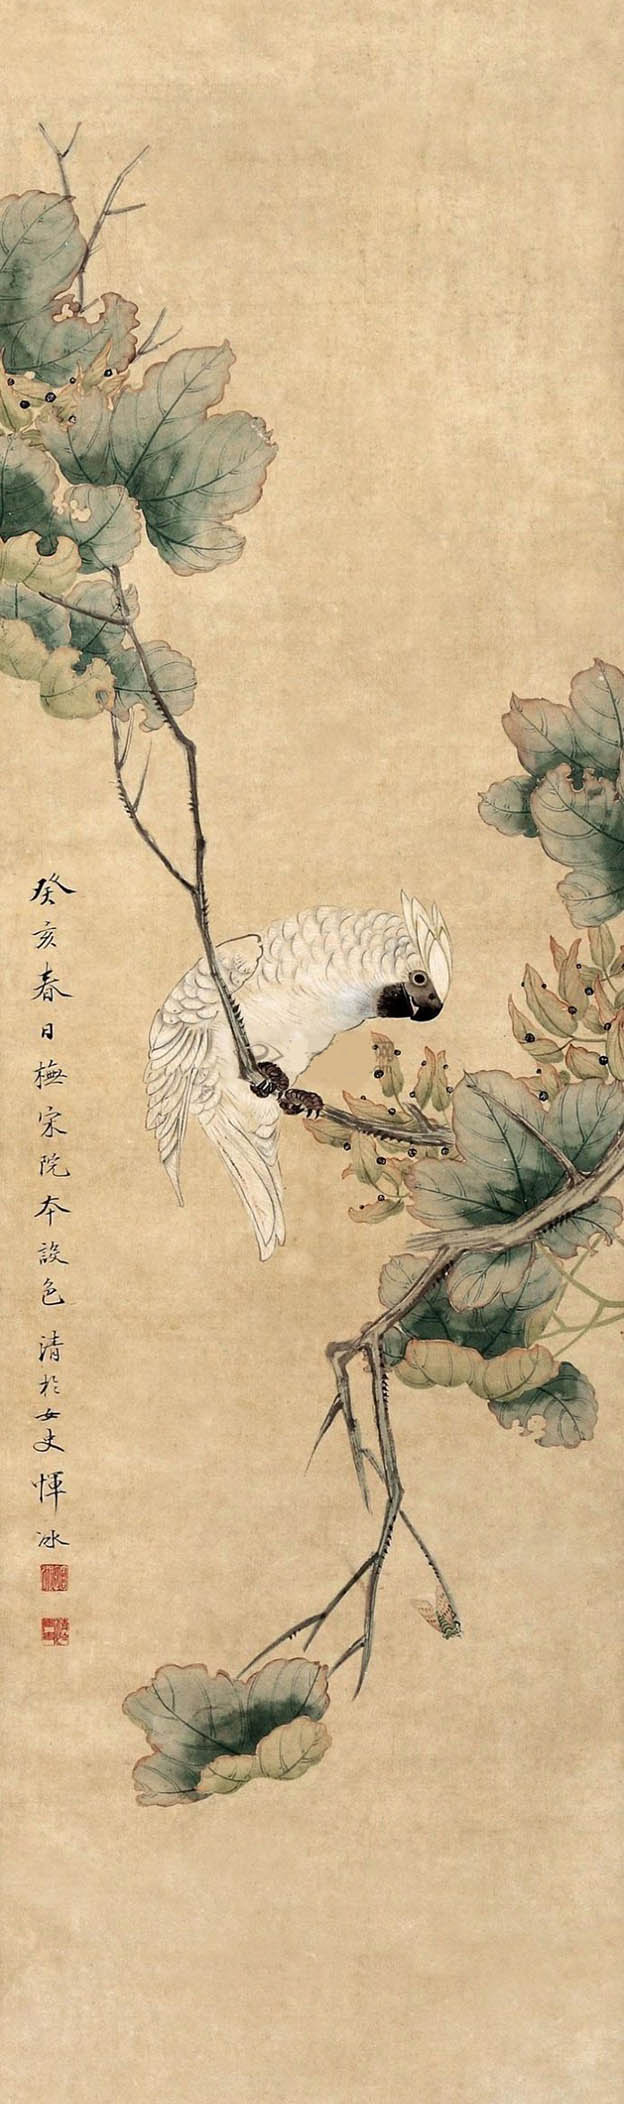 癸亥春日橅宋院本設色 清於女史 惲冰